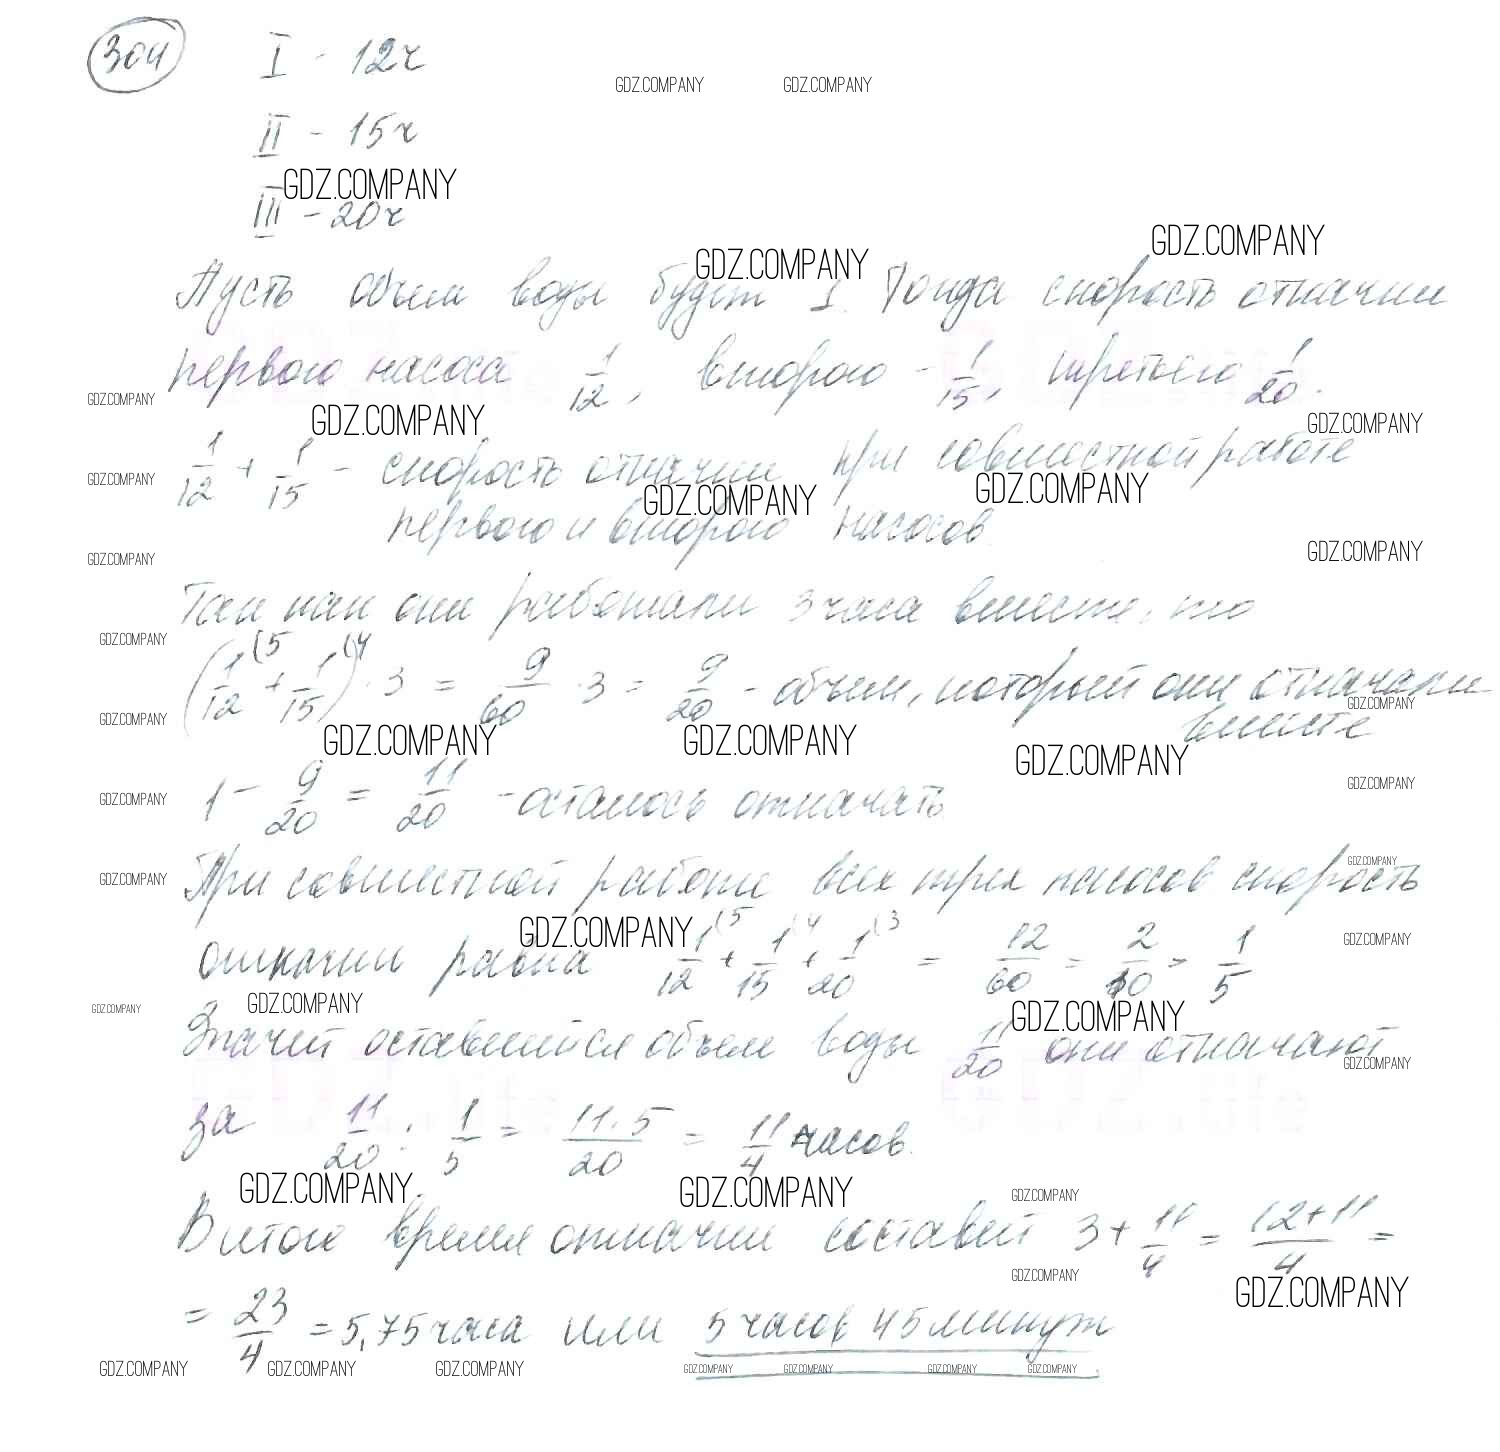 304 I - 12ч
GDZ.COMPANY GDZ.COMPANY
II - 15ч
GDZ.COMPANY
III - 20ч
GDZ.COMPANY GDZ.COMPANY
Пусть объем воды будет 1. Тогда скорость откачки
первого насоса 1/12, второго - 1/15, третьего 1/20.
GDZ.COMPANY GDZ.COMPANY GDZ.COMPANY
1/12 + 1/15 - скорость откачки при совместной работе
GDZ.COMPANY GDZ.COMPANY GDZ.COMPANY
первого и второго насосов.
GDZ.COMPANY GDZ.COMPANY
Так как они работали 3 часа вместе, то
GDZ.COMPANY
(1/12 (5 + 1/15 (4) · 3 = 9/60 · 3 = 9/20 - объем, который они откачали
GDZ.COMPANY GDZ.COMPANY
вместе
GDZ.COMPANY GDZ.COMPANY GDZ.COMPANY
GDZ.COMPANY
1 - 9/20 = 11/20 - осталось откачать
GDZ.COMPANY
GDZ.COMPANY GDZ.COMPANY
При совместной работе всех трех насосов скорость
GDZ.COMPANY GDZ.COMPANY
откачки равна 1/12 (5 + 1/15 (4 + 1/20 (3 = 12/60 = 2/10 = 1/5
GDZ.COMPANY GDZ.COMPANY GDZ.COMPANY
Значит оставшийся объем воды 11/20 они откачают
GDZ.COMPANY
за 11/20 : 1/5 = 11·5/20 = 11/4 часов.
GDZ.COMPANY GDZ.COMPANY GDZ.COMPANY
В итоге время откачки составит 3 + 11/4 = 12+11/4 =
GDZ.COMPANY GDZ.COMPANY
= 23/4 = 5,75 часа или 5 часов 45 минут
GDZ.COMPANY GDZ.COMPANY GDZ.COMPANY GDZ.COMPANY GDZ.COMPANY GDZ.COMPANY GDZ.COMPANY